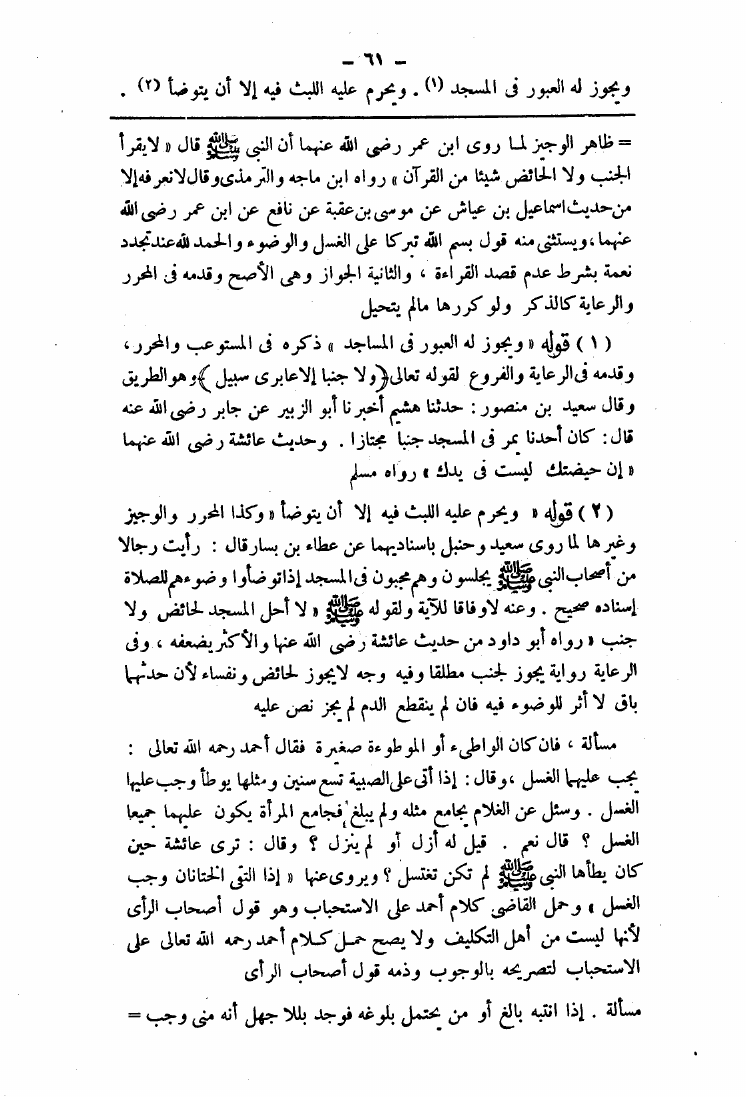 — ٦١ —
ويجوز له العبور فى المسجد (١) . ويحرم عليه اللبث فيه إلا أن يتوضأ (٢) .
= ظاهر الوجيز لما روى ابن عمر رضى الله عنهما أن النبى ﷺ قال « لايقرأ
الجنب ولا الحائض شيئا من القرآن » رواه ابن ماجه والترمذى وقال لانعرفه إلا
من حديث اسماعيل بن عياش عن موسى بن عقبة عن نافع عن ابن عمر رضى الله
عنهما ، ويستثنى منه قول بسم الله تبركا على الغسل والوضوء والحمد لله عند تجدد
نعمة بشرط عدم قصد القراءة ، والثانية الجواز وهى الأصح وقدمه فى المحرر
والرعاية كالذكر ولو كررها مالم يتحيل
( ١ ) قوله « ويجوز له العبور فى المساجد » ذكره فى المستوعب والمحرر ،
وقدمه فى الرعاية والفروع لقوله تعالى ( ولا جنبا إلا عابرى سبيل ) وهو الطريق
وقال سعيد بن منصور : حدثنا هشيم أخبرنا أبو الزبير عن جابر رضى الله عنه
قال : كان أحدنا يمر فى المسجد جنبا مجتازا . وحديث عائشة رضى الله عنهما
« إن حيضتك ليست فى يدك » رواه مسلم
( ٢ ) قوله « ويحرم عليه اللبث فيه إلا أن يتوضأ » وكذا المحرر والوجيز
وغيرها لما روى سعيد وحنبل باسناديهما عن عطاء بن بسار قال : رأيت رجالا
من أصحاب النبى ﷺ يجلسون وهم مجنبون فى المسجد إذا توضأوا وضوءهم للصلاة
إسناده صحيح . وعنه لا وفاقا للآية ولقوله ﷺ « لا أحل المسجد لحائض ولا
جنب » رواه أبو داود من حديث عائشة رضى الله عنها والأكثر يضعفه ، وفى
الرعاية رواية يجوز لجنب مطلقا وفيه وجه لايجوز لحائض ونفساء لأن حدثهما
باق لا أثر للوضوء فيه فان لم ينقطع الدم لم يجز نص عليه
مسألة ، فان كان الواطىء أو الموطوءة صغيرة فقال أحمد رحمه الله تعالى :
يجب عليهما الغسل ، وقال : إذا أتى على الصبية تسع سنين ومثلها يوطأ وجب عليها
الغسل . وسئل عن الغلام يجامع مثله ولم يبلغ فجامع المرأة يكون عليهما جميعا
الغسل ؟ قال نعم . قيل له أنزل أو لم ينزل ؟ وقال : ترى عائشة حين
كان يطأها النبى ﷺ لم تكن تغتسل ؟ ويروى عنها « إذا التقى الختانان وجب
الغسل » وحمل القاضى كلام أحمد على الاستحباب وهو قول أصحاب الرأى
لأنها ليست من أهل التكليف ولا يصح حمل كلام أحمد رحمه الله تعالى على
الاستحباب لتصريحه بالوجوب وذمه قول أصحاب الرأى
مسألة . إذا انتبه بالغ أو من يحتمل بلوغه فوجد بللا جهل أنه منى وجب =